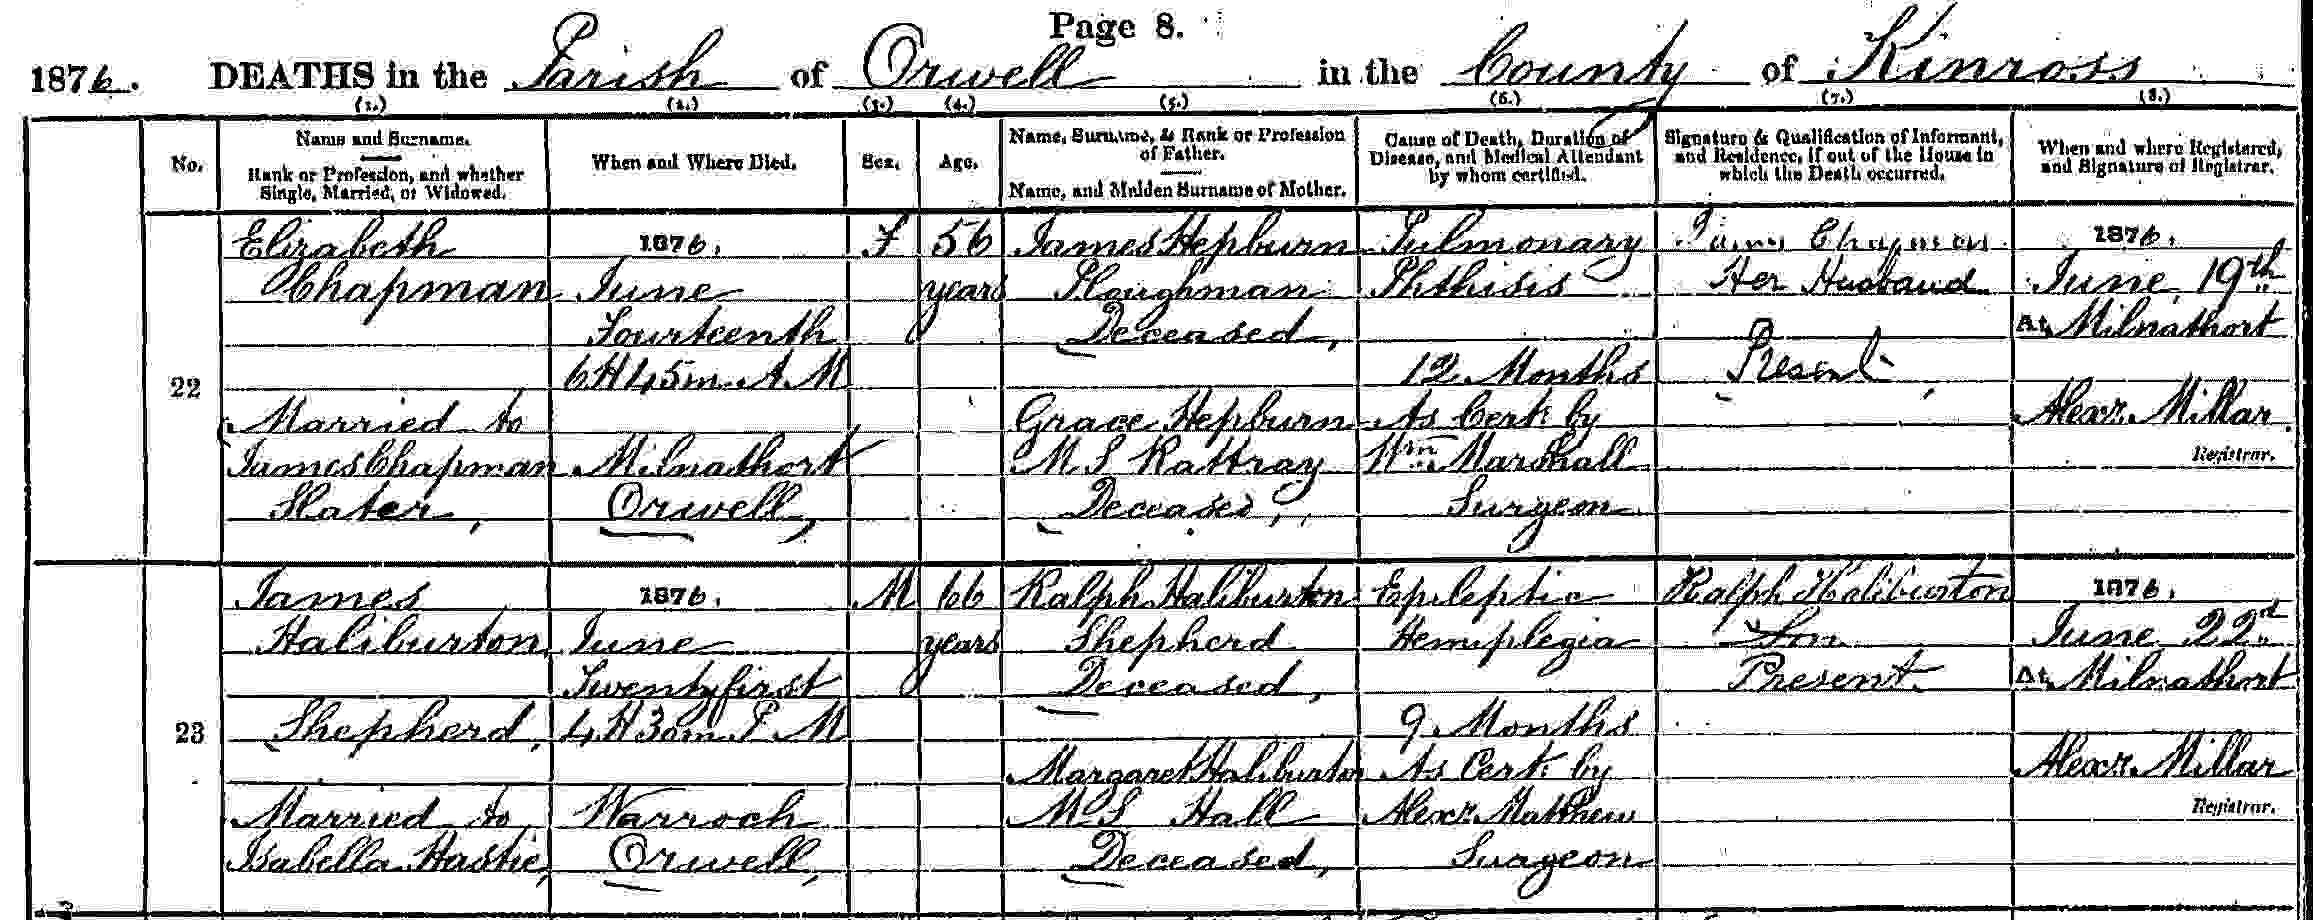 Page 8.
1876. DEATHS in the Parish of Orwell in the County of Kinross
(1.) (2.) (3.) (4.) (5.) (6.) (7.) (8.)
No.
Name and Surname.
Rank or Profession, and whether
Single, Married, or Widowed.
When and Where Died.
Sex.
Age.
Name, Surname, & Rank or Profession
of Father.
Name, and Maiden Surname of Mother.
Cause of Death, Duration of
Disease, and Medical Attendant
by whom certified.
Signature & Qualification of Informant,
and Residence, if out of the House in
which the Death occurred.
When and where Registered,
and Signature of Registrar.
22
Elizabeth
Chapman
Married to
James Chapman
Slater,
1876.
June
Fourteenth
6 H 45 m. A. M
Milnathort
Orwell,
F
56
years
James Hepburn
Ploughman
Deceased,
Grace Hepburn
M S Rattray
Deceased,
Pulmonary
Phthisis
12 Months
As Cert. by
Wm. Marshall
Surgeon
James Chapman
Her Husband
Present
1876.
June 19th
At Milnathort
Alexr. Millar
Registrar.
23
James
Haliburton
Shepherd,
Married to
Isabella Hastie,
1876.
June
Twentyfirst
4 H 30m P. M
Warroch
Orwell,
M
66
years
Ralph Haliburton
Shepherd
Deceased,
Margaret Haliburton
M S Hall
Deceased,
Epileptic
Hemiplegia
9 Months
As Cert. by
Alexr. Matthew
Surgeon
Ralph Haliburton
Son
Present
1876.
June 22d
At Milnathort
Alexr. Millar
Registrar.